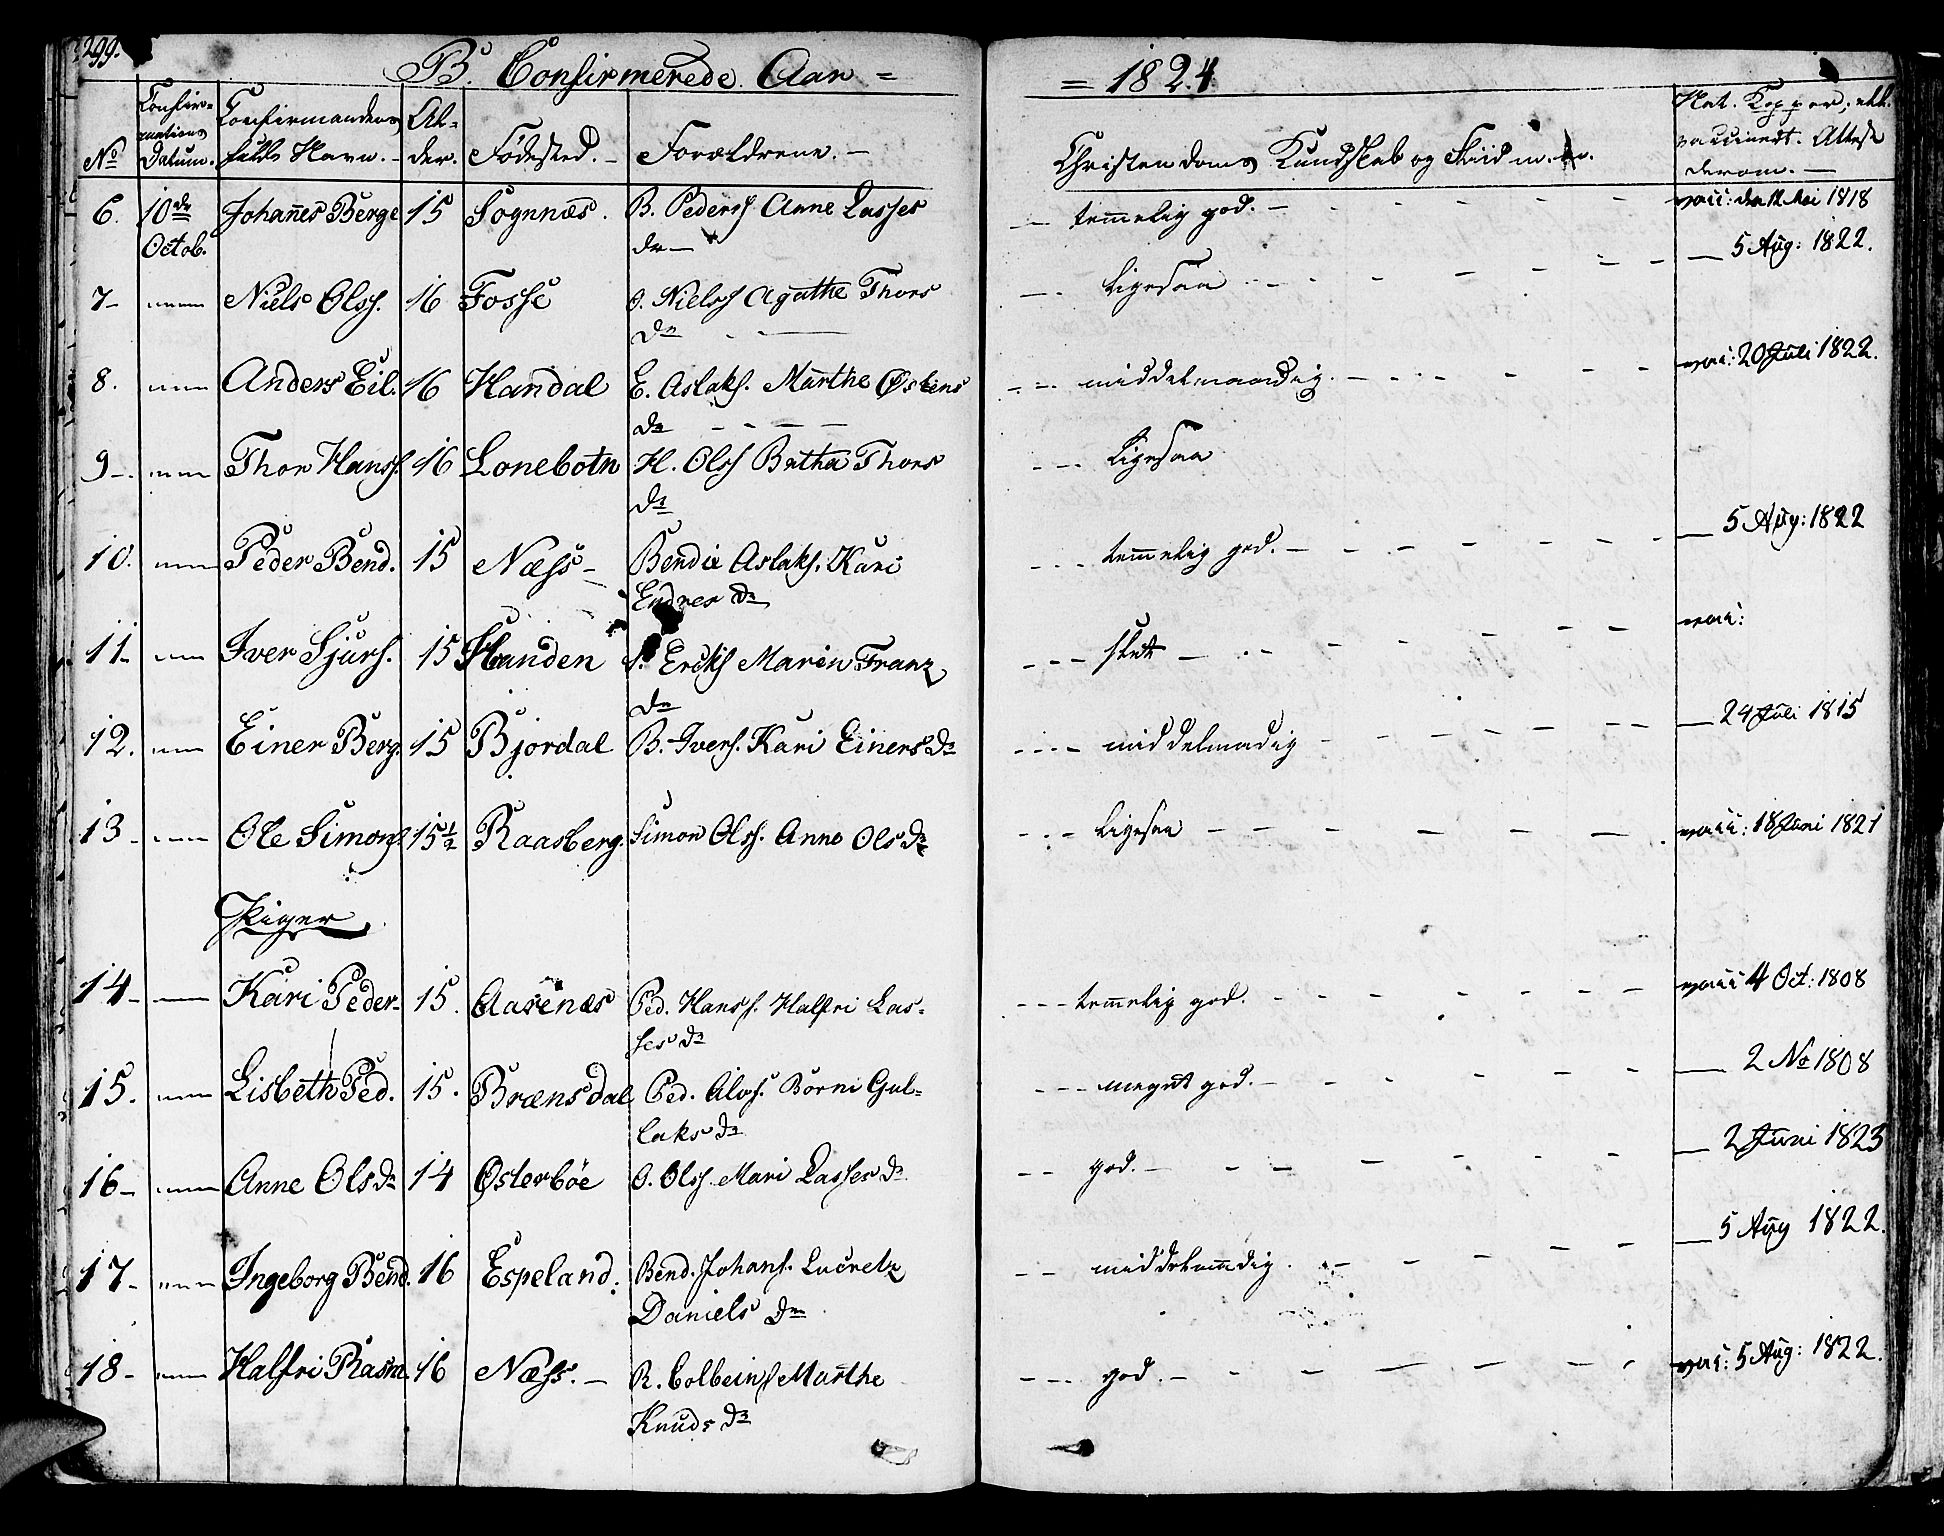 299.
B. Confirmerede Aar =
= 1824
No
Confir=
mations
Datum.
Confirmandens
fulde Navn. -
Al-
der.
Fødested. -
Forældrene. -
Christendoms Kundskab og Fliid m.m.
Nat. Kopper, ell.
vaccinert. Attest
derom. -
6. 10de Octob. Johan̄es Berge 15 Sognnæs. B. Peders. Anne Lasses
dr - tem̄elig god. - vacc: den 12 Mai 1818
7 - Niels Ols. 16 Fosse O. Niels. Agathe Thors
dr - ligesaa - 5 Aug: 1822.
8. Anders Eil. 16 Handal E. Aslaks. Marthe Østens
dr - middelmaadig. - vacc: 20 Juli 1822.
9 - Thor Hanss. 16 Lonebotn H. Ols. Bertha Thors
dr - ligesaa
10. Peder Bend. 15 Næss - Bendix Aslaks. Kari
Endres dr - tem̄elig god. - 5 Aug: 1822
11 - Iver Sjurs. 15 Handen S. Ericks. Maren Franz
dr - slet - vacc:
12. Einer Berg. 15 Bjordal B. Ivers. Kari Einers dr - middelmadig - 24 Juli 1815
13 - Ole Simons. 15½ Raasberg. Simon Ols. Anne Ols dr - ligesaa - vacc: 18 Juni 1821
Piger
14 - Kari Peder- 15. Aarenæs Ped. Hans. Halfri Las-
ses dr - tem̄elig god. - vacc 4 Oct: 1808
15. Lisbeth Ped. 15. Brænsdal Ped. Alvs. Børni Gul-
laks dr - meget god. - 2 No 1808
16 - Anne Ols dr 14 Østerbøe O. Ols. Mari Lasses dr - god. - 2 Juni 1823
17 - Ingeborg Bend. 16 Espeland. Bend. Johans. Lucretz
Daniels dr - middelmadig. - 5 Aug 1822.
18 - Halfri Rasm. 16 Næss. - R. Colbeins. Marthe
Knuds dr - god. - vacc: 5 Aug: 1822.